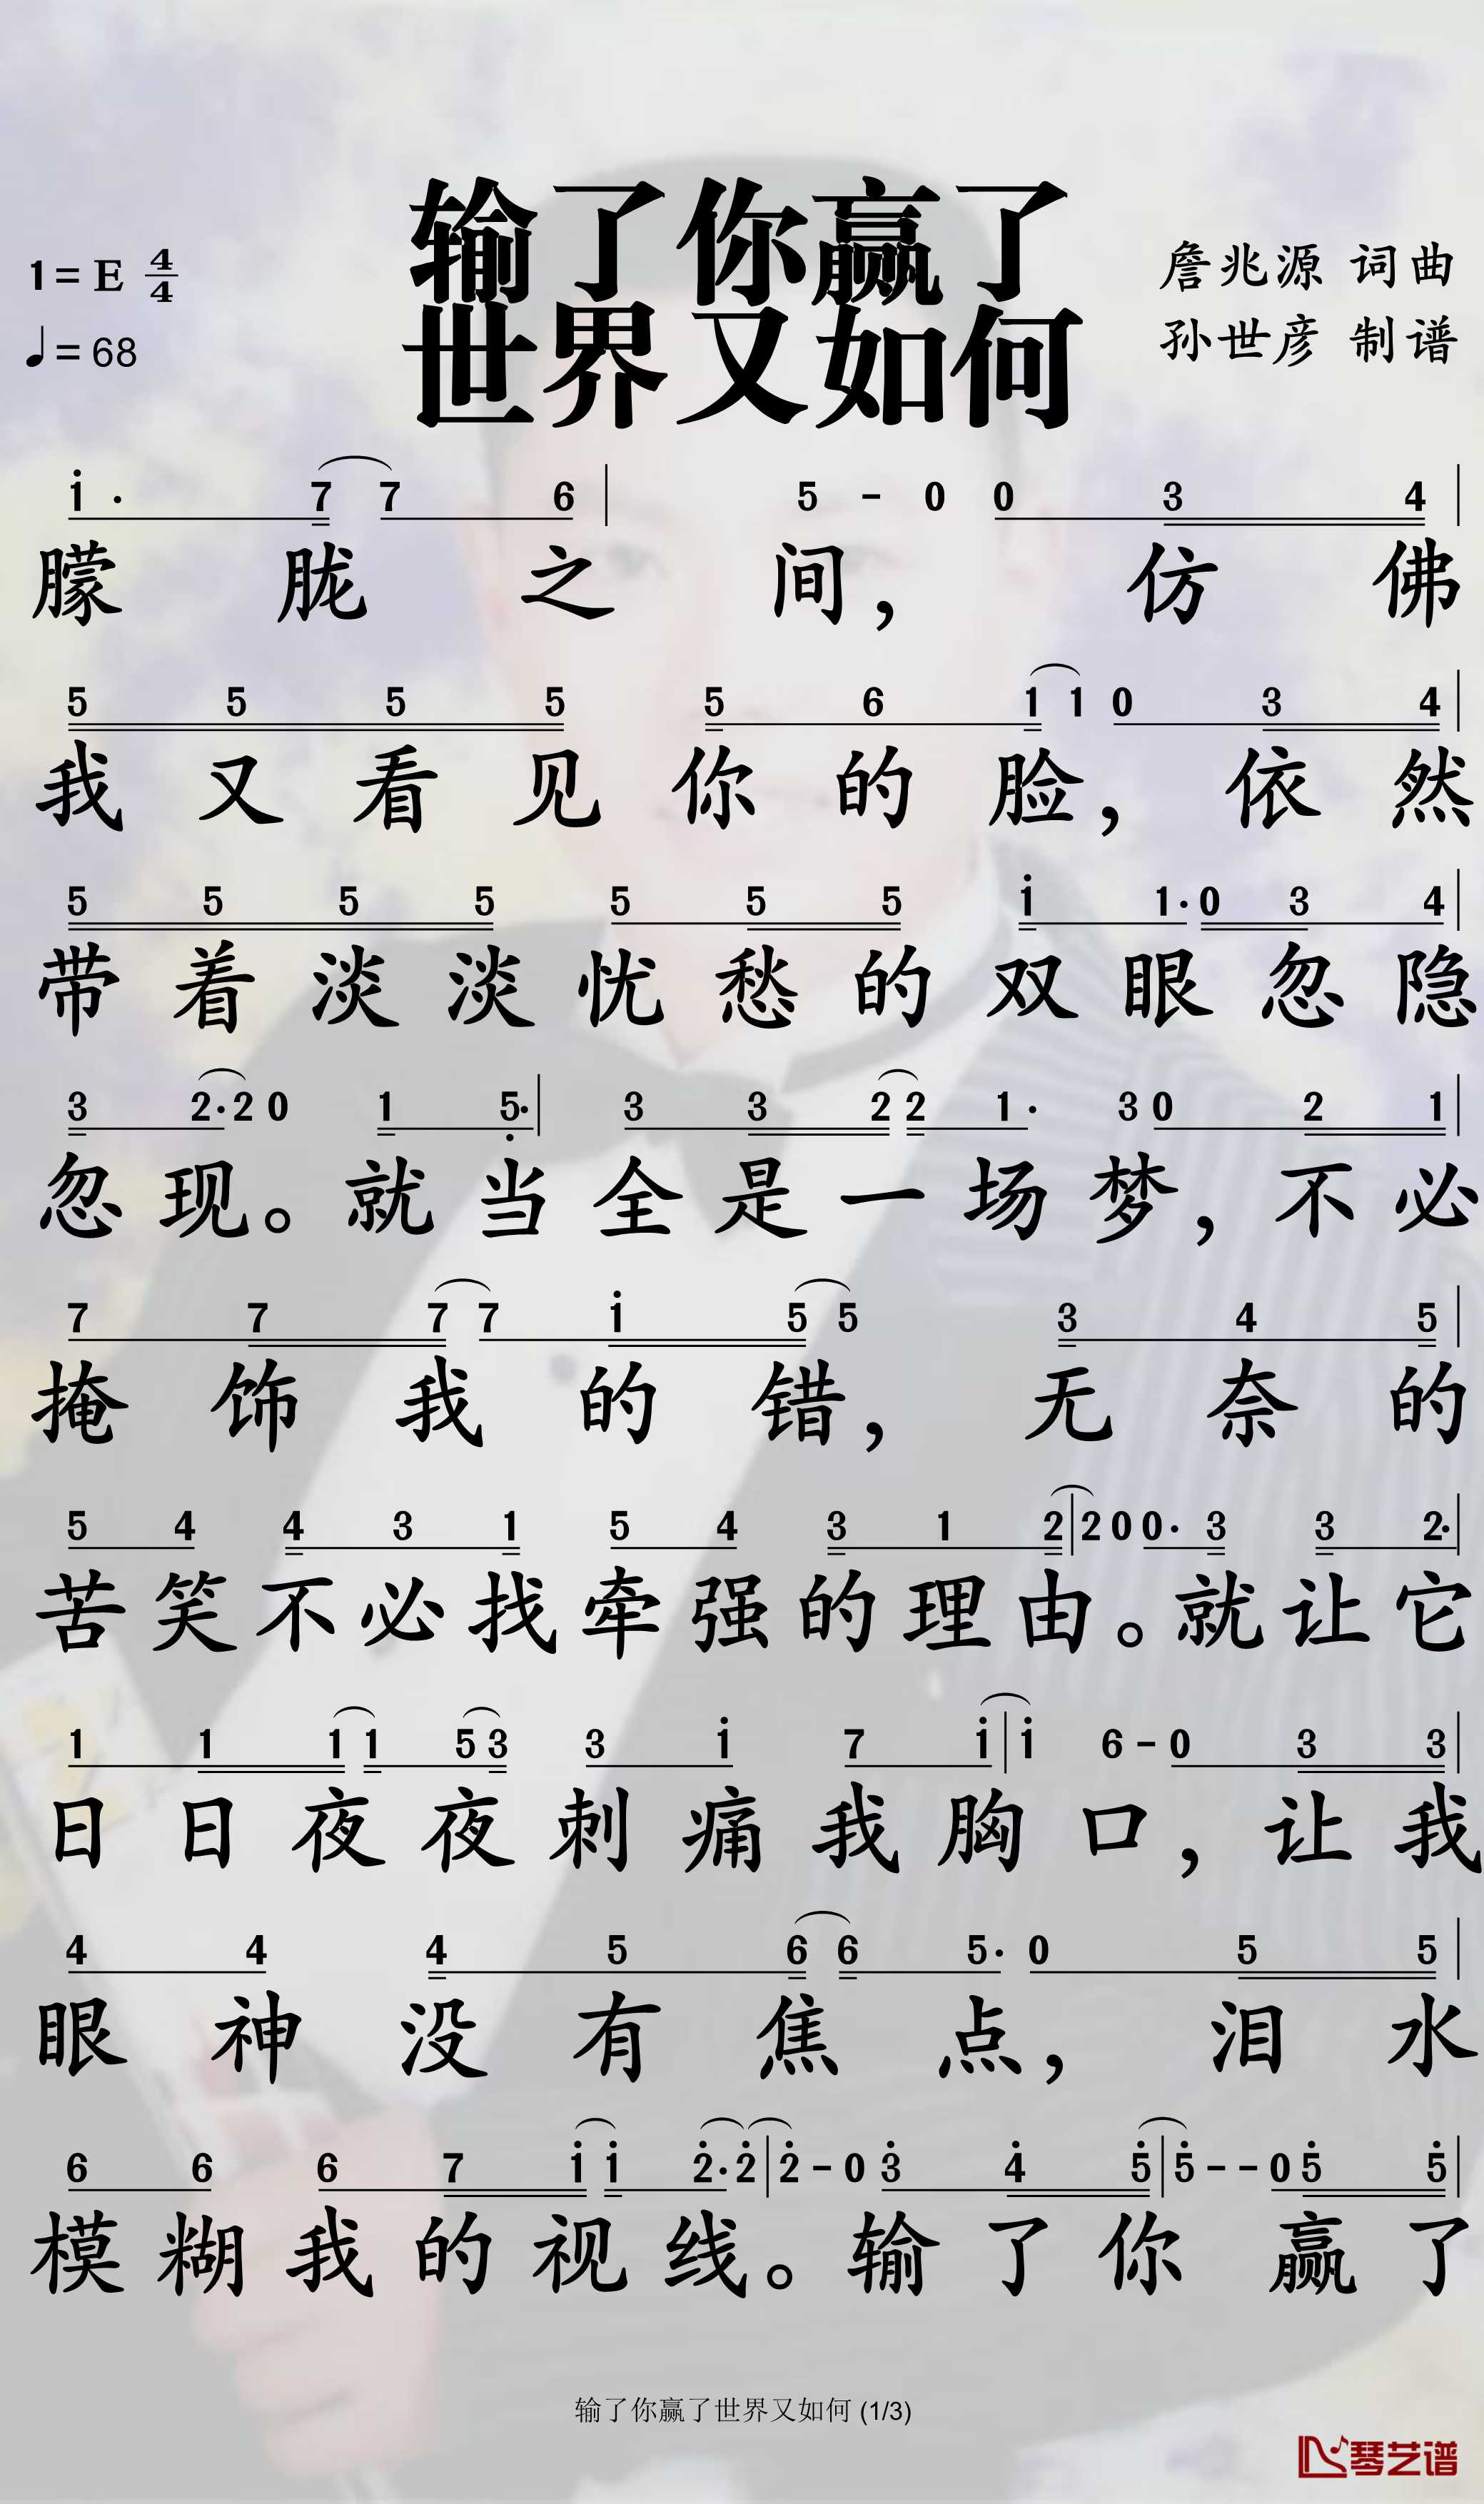 输了你赢了
世界又如何
1=E 4/4
♩=68
詹兆源 词曲
孙世彦 制谱
i · 7 7 6 | 5 - 0 0 3 4 |
朦胧之间，仿佛
5 5 5 5 5 6 1 1 0 3 4 |
我又看见你的脸，依然
5 5 5 5 5 5 5 i 1· 0 3 4 |
带着淡淡忧愁的双眼忽隐
3 2· 2 0 1 5̣· | 3 3 2 2 1· 3 0 2 1 |
忽现。就当全是一场梦，不必
7 7 7 7 i 5 5 3 4 5 |
掩饰我的错，无奈的
5 4 4 3 1 5 4 3 1 2 | 2 0 0· 3 3 2· |
苦笑不必找牵强的理由。就让它
1 1 1 1 5 3 3 i 7 i | i 6 - 0 3 3 |
日日夜夜刺痛我胸口，让我
4 4 4 5 6 6 5· 0 5 5 |
眼神没有焦点，泪水
6 6 6 7 i i 2̇· 2̇ | 2̇ - 0 3̇ 4̇ 5̇ | 5̇ - - 0 5̇ 5̇ |
模糊我的视线。输了你赢了
输了你赢了世界又如何 (1/3)
琴艺谱